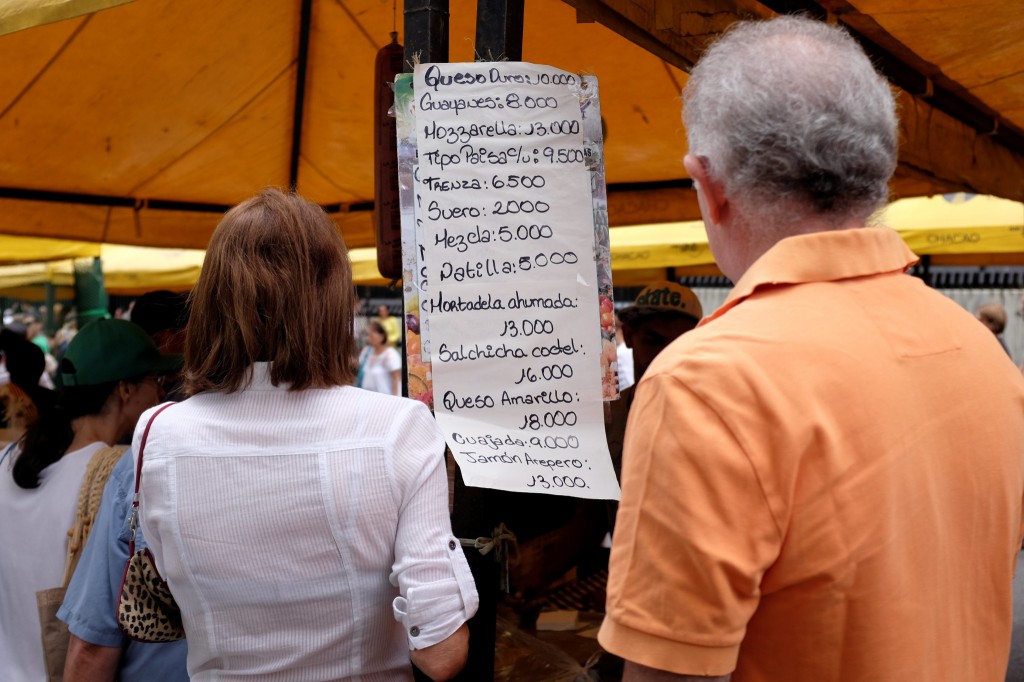 Queso Duro: 10.000
Guayanes: 8.000
Mozzarella: 13.000
Tipo Paisa c/u: 9.500
Trenza: 6.500
Suero: 2000
Mezcla: 5.000
Natilla: 5.000
Mortadela ahumada:
13.000
Salchicha coctel:
16.000
Queso Amarillo:
18.000
Cuajada: 9.000
Jamón Arepero:
13.000.
CHACAO